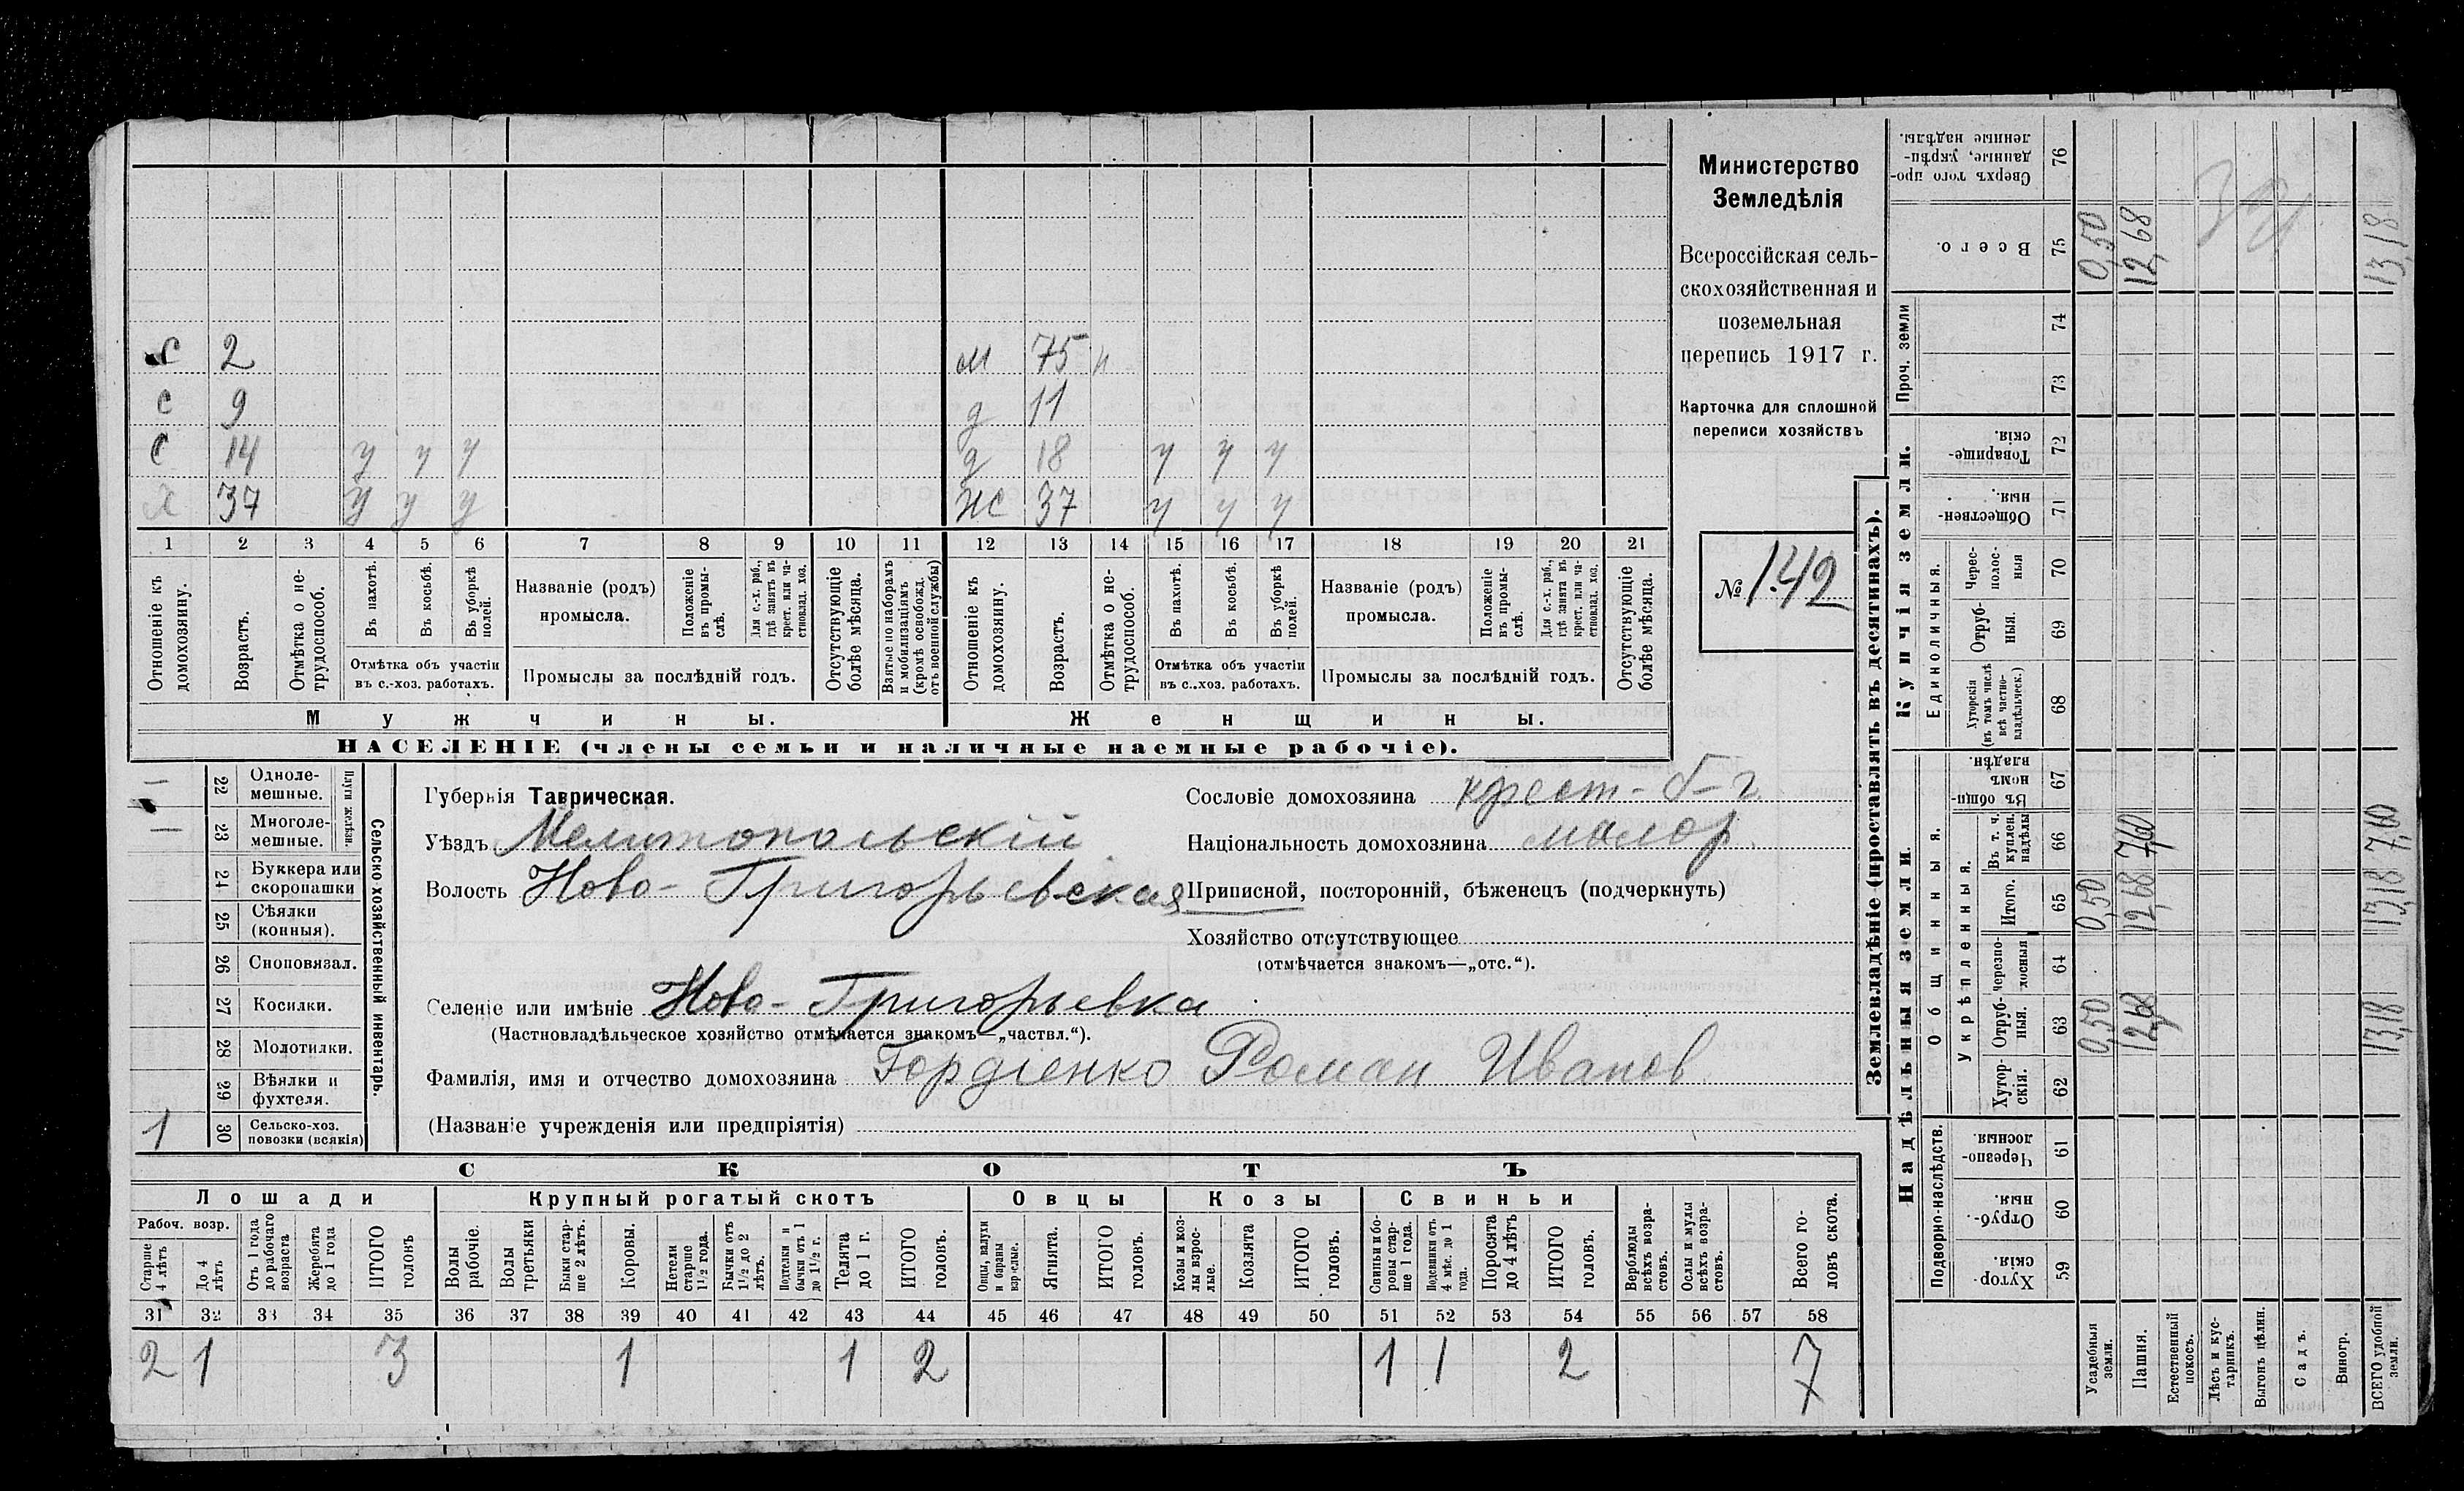 с 2 м 75 н
с 9 д 11
с 14 у у у д 18 у у у
х 37 у у у жс 37 у у у
1 2 3 4 5 6 7 8 9 10 11 12 13 14 15 16 17 18 19 20 21
Отношеніе къ домохозяину.
Возрастъ.
Отмѣтка о не-трудоспособ.
Въ пахотѣ.
Въ косьбѣ.
Въ уборкѣ полей.
Отмѣтка объ участіи въ с.-хоз. работахъ.
Названіе (родъ) промысла.
Положеніе въ промы-слѣ.
Для с.-х. раб., гдѣ занятъ въ крест. или ча-стновлад. хоз.
Промыслы за послѣдній годъ.
Отсутствующіе болѣе мѣсяца.
Взятые по наборамъ и мобилизаціямъ (кромѣ освобожд. отъ военной службы)
Отношеніе къ домохозяину.
Возрастъ.
Отмѣтка о не-трудоспособ.
Въ пахотѣ.
Въ косьбѣ.
Въ уборкѣ полей.
Отмѣтка объ участіи въ с.-хоз. работахъ.
Названіе (родъ) промысла.
Положеніе въ промы-слѣ.
Для с.-х. раб., гдѣ занята въ крест. или ча-стновлад. хоз.
Промыслы за послѣдній годъ.
Отсутствующіе болѣе мѣсяца.
Мужчины. Женщины.
НАСЕЛЕНІЕ (члены семьи и наличные наемные рабочіе).
Министерство
Земледѣлія
Всероссійская сель-
скохозяйственная и
поземельная
перепись 1917 г.
Карточка для сплошной
переписи хозяйствъ
№ 142
Сельско хозяйственный инвентарь.
Плуги желѣзн.
— 22 Одноле-мешные.
— 23 Многоле-мешные.
24 Буккера или скоропашки
25 Сѣялки (конныя).
26 Сноповязал.
27 Косилки.
28 Молотилки.
29 Вѣялки и фухтеля.
1 30 Сельско-хоз. повозки (всякія)
Губернія Таврическая.
Уѣздъ Мелитопольскій
Волость Ново-Григорьевская
Сословіе домохозяина крест-б-г.
Національность домохозяина малор.
Приписной, посторонній, бѣженецъ (подчеркнуть)
Хозяйство отсутствующее
(отмѣчается знакомъ—„отс.“).
Селеніе или имѣніе Ново-Григорьевка
(Частновладѣльческое хозяйство отмѣчается знакомъ—„частвл.“).
Фамилія, имя и отчество домохозяина Гордіенко Роман Иванов
(Названіе учрежденія или предпріятія)
СКОТЪ
Лошади Крупный рогатый скотъ Овцы Козы Свиньи
Рабоч. возр.
Старше 4 лѣтъ
До 4 лѣтъ
Отъ 1 года до рабочаго возраста
Жеребята до 1 года
ИТОГО головъ
Волы рабочіе.
Волы третьяки
Быки стар-ше 2 лѣтъ.
Коровы.
Нетели старше 1½ года.
Бычки отъ 1½ до 2 лѣтъ.
Подтелки и бычки отъ 1 до 1½ г.
Телята до 1 г.
ИТОГО головъ.
Овцы, валухи и бараны взрослые.
Ягнята.
ИТОГО головъ.
Козы и коз-лы взрос-лые.
Козлята
ИТОГО головъ.
Свиньи и бо-ровы стар-ше 1 года.
Подсвинки отъ 4 мѣс. до 1 года.
Поросята до 4 лѣтъ
ИТОГО головъ.
Верблюды всѣхъ возра-стовъ.
Ослы и мулы всѣхъ возра-стовъ.
Всего го-ловъ скота.
31 32 33 34 35 36 37 38 39 40 41 42 43 44 45 46 47 48 49 50 51 52 53 54 55 56 57 58
2 1 3 1 1 2 1 1 2 7
Землевладѣніе (проставлять въ десятинахъ).
Надѣльныя земли
Купчія земли.
Проч. земли
Подворно-наслѣдств.
Общинныя.
Укрѣпленныя.
Единоличныя.
59 Хутор-скія.
60 Отруб-ныя.
61 Черезпо-лосныя
62 Хутор-скія.
63 Отруб-ныя.
64 черезпо-лосныя
65 Итого.
66 Въ т. ч. куплен. надѣлы
67 Въ общи-номъ владѣн.
68 Хуторскія (въ томъ числѣ всѣ частно-владѣльческ.)
69 Отруб-ныя.
70 Черес-полос-ныя
71 Обществен-ныя.
72 Товарище-скія.
73
74
75 Всего.
76 Сверхъ того про-данные, укрѣп-ленные надѣлы.
Усадебныя земли. 0,50 0,50 0,50
Пашня. 12,68 12,68 7,00 12,68
Естественный покосъ.
Лѣсъ и кус-тарникъ.
Выгонъ цѣлин.
Садъ.
Виногр.
ВСЕГО удобной земли. 13,18 13,18 7,00 13,18